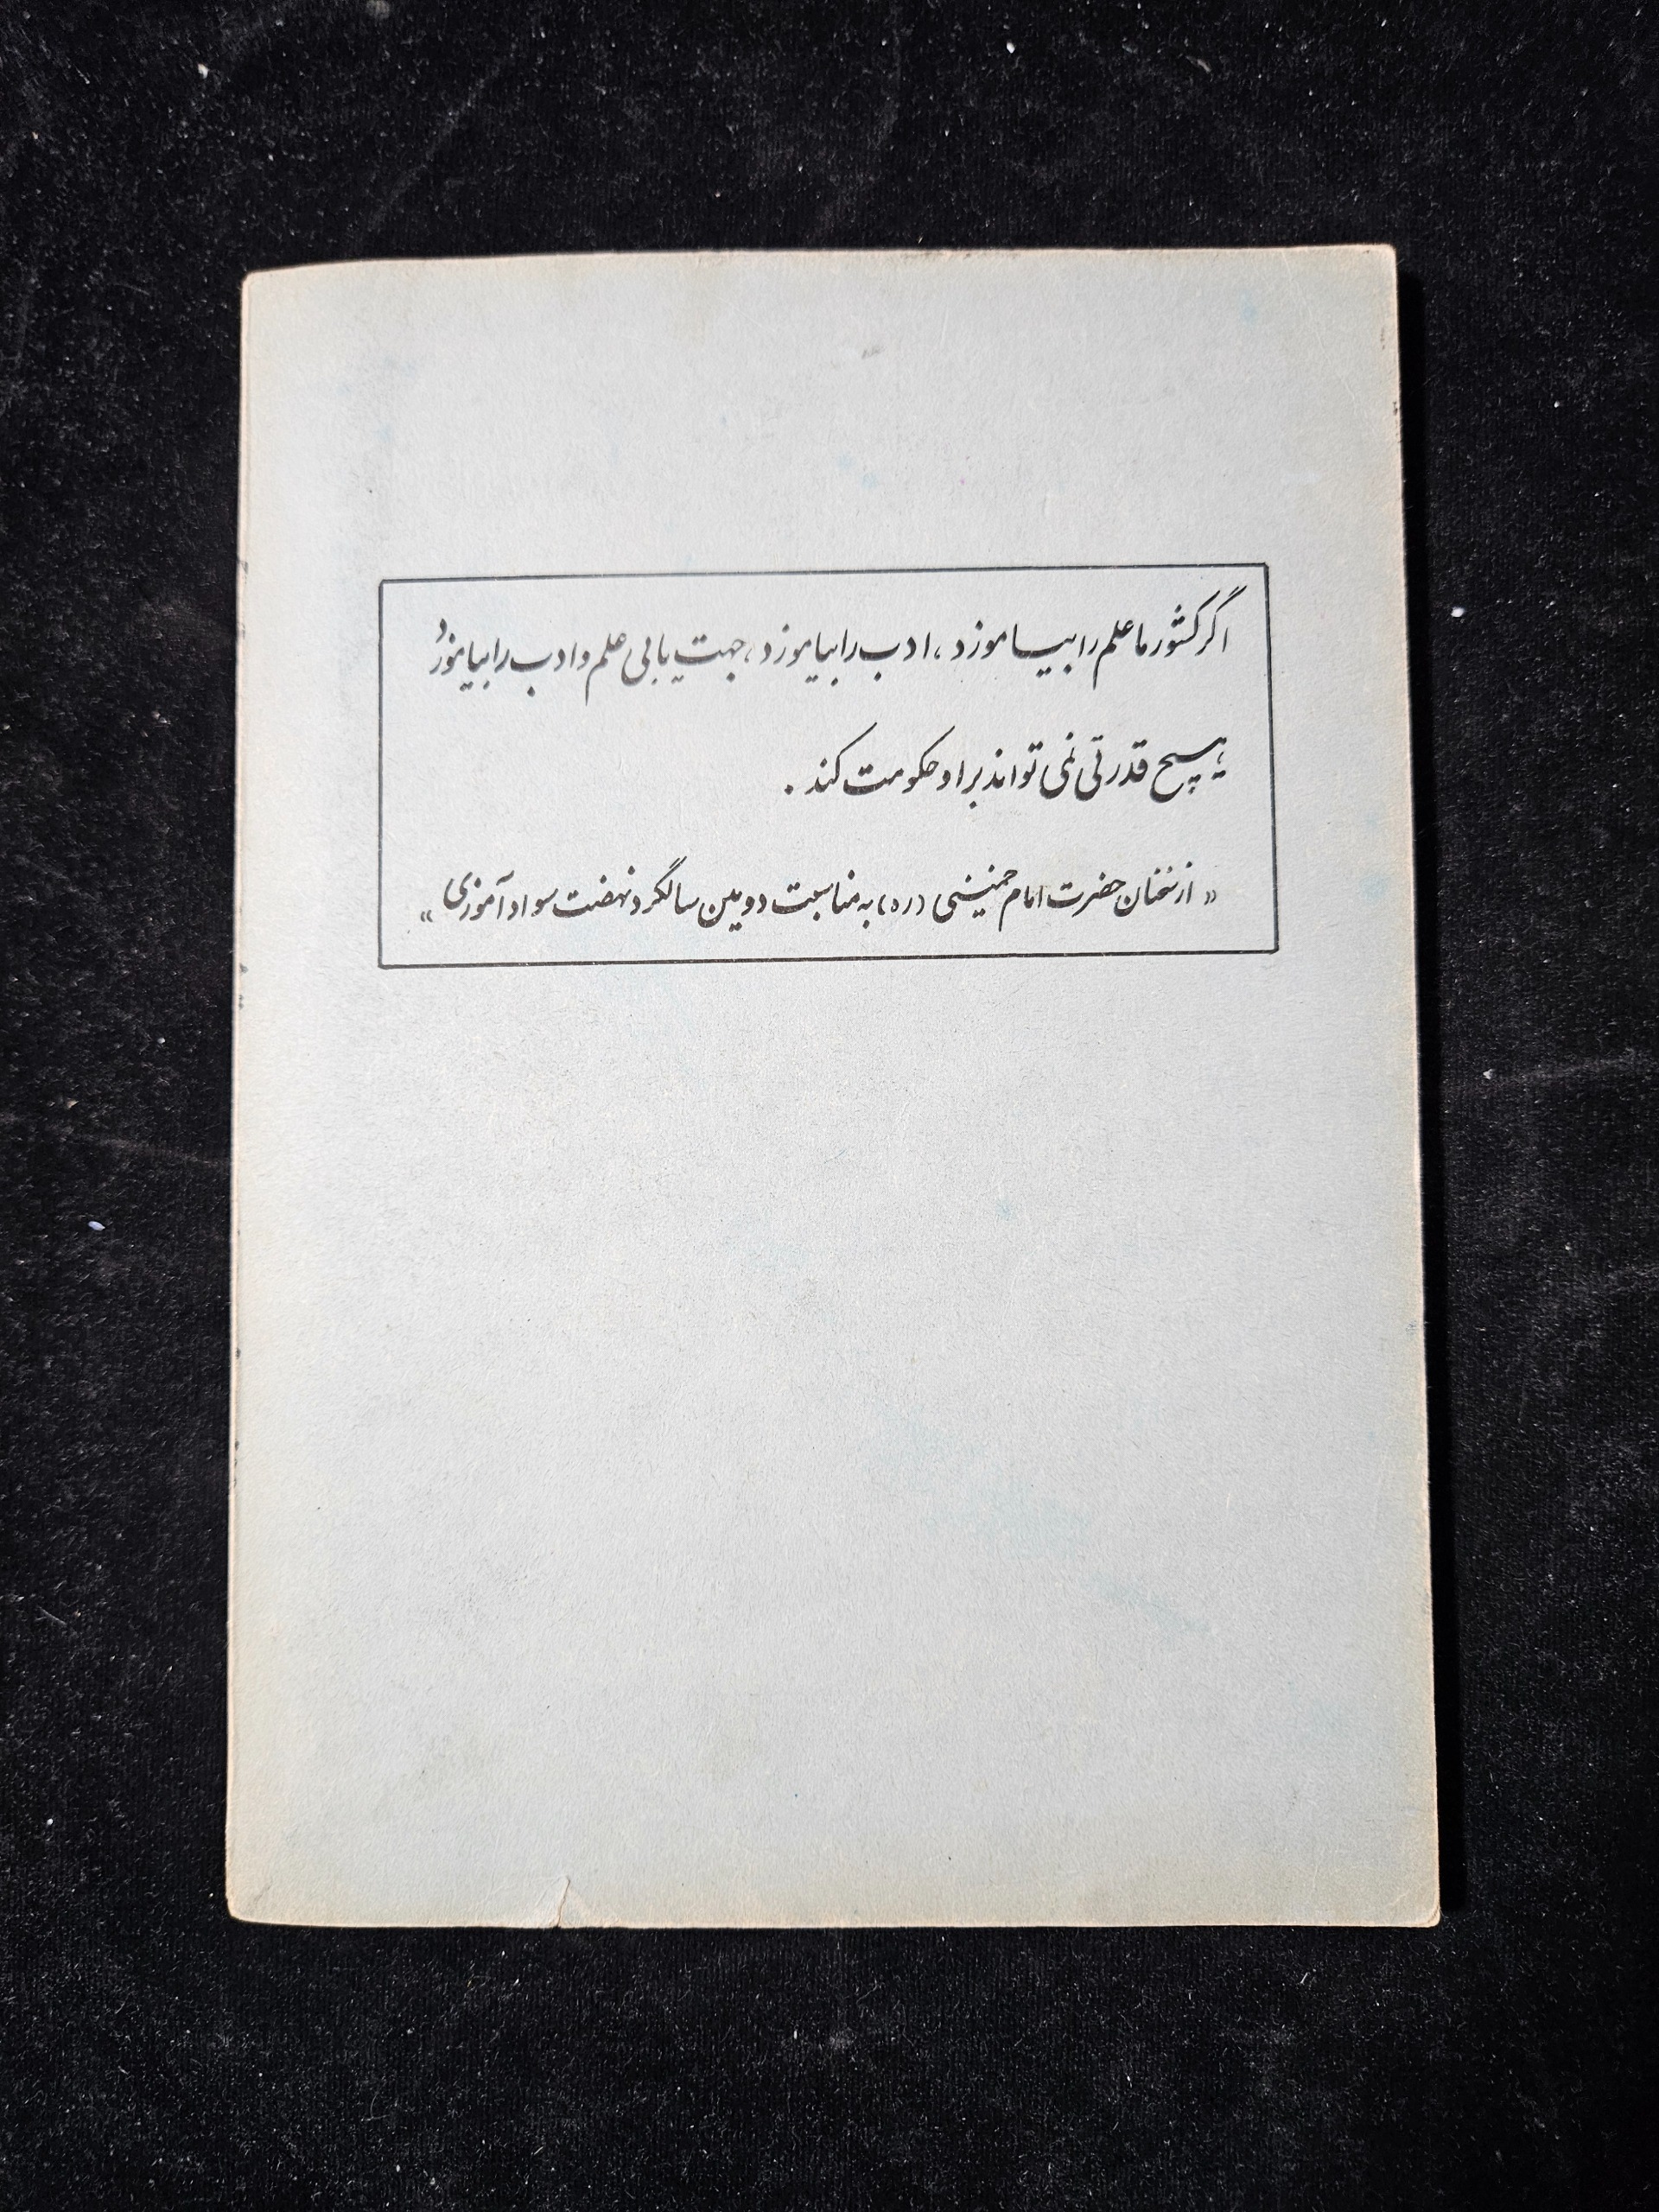 اگر کشور ما علم را بیاموزد، ادب را بیاموزد، جهت یابی علم و ادب را بیاموزد
هیچ قدرتی نمی تواند بر او حکومت کند .
«از سخنان حضرت امام خمینی (ره) به مناسبت دومین سالگرد نهضت سوادآموزی»